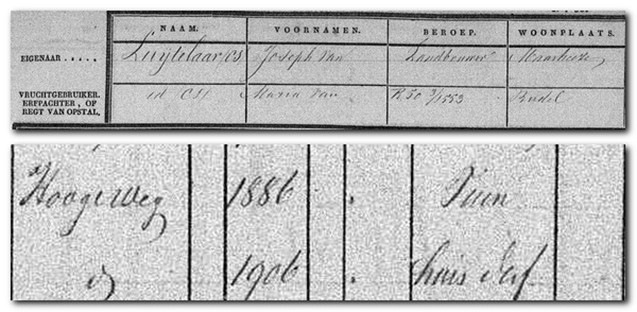 NAAM. VOORNAMEN. BEROEP. WOONPLAATS.
EIGENAAR ..... Luijtelaar, cs Joseph van Landbouwer Maarheeze
VRUCHTGEBRUIKER.
ERFPACHTER, OF
REGT VAN OPSTAL,
id csz Maria van R50 3/1553 Budel
Hoogeweg 1886 . Tuin
id 1906 . huis & erf